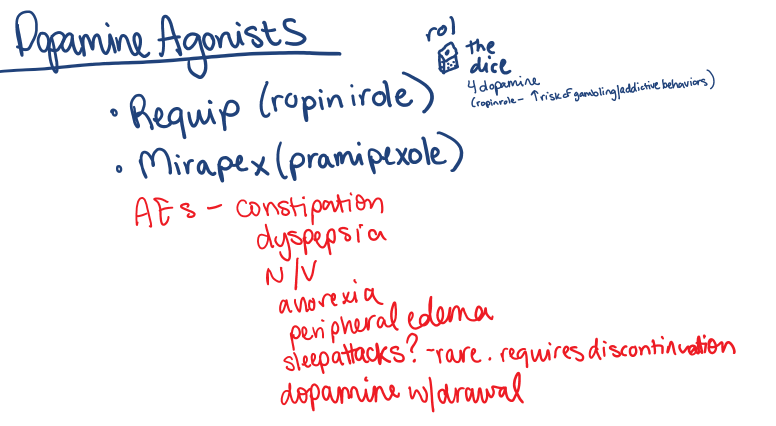 Dopamine Agonists
rol
the
dice
4 dopamine
(ropinrole - ↑ risk of gambling/addictive behaviors)
• Requip (ropinirole)
• Mirapex (pramipexole)
AEs - constipation
dyspepsia
N/V
anorexia
peripheral edema
sleep attacks? - rare. requires discontinuation
dopamine w/drawal